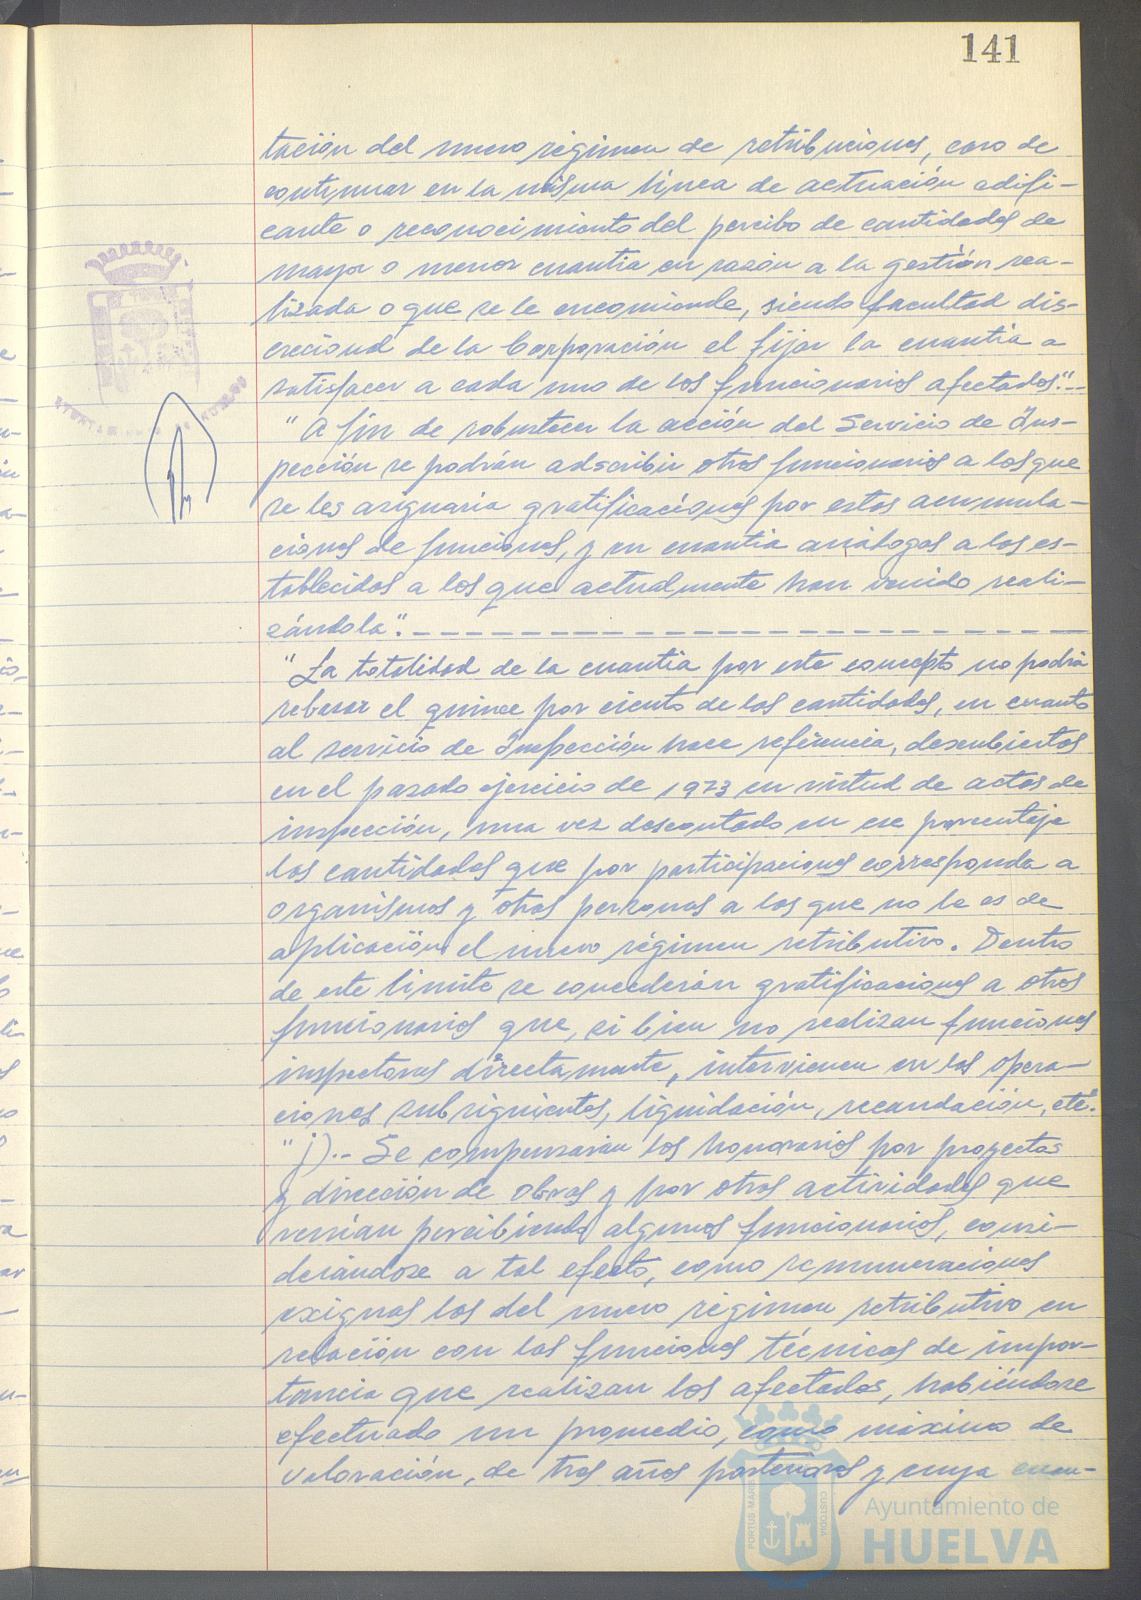 141
tación del nuevo régimen de retribuciones, caso de
continuar en la misma línea de actuación edifi-
cante o reconocimiento del percibo de cantidades de
mayor o menor cuantia en razón a la gestión rea-
lizada o que se le encomiende, siendo facultad dis-
crecional de la Corporación el fijar la cuantía a
satisfacer a cada uno de los funcionarios afectados".-
"A fin de robustecer la acción del Servicio de Ins-
pección se podrán adscribir otros funcionarios a los que
se les asignaria gratificaciones por estas acumula-
ciones de funciones, y en cuantia análogas a los es-
tablecidos a los que actualmente han venido reali-
zándola".- - - - - - - - - - - - - - - - - - - - - -
"La totalidad de la cuantia por este concepto no podrá
rebasar el quince por ciento de las cantidades, en cuanto
al servicio de Inspección hace referencia, descubiertas
en el pasado ejercicio de 1973 en virtud de actas de
inspección, una vez descontado en ese porcentaje
las cantidades que por participaciones corresponda a
organismos y otras personas a las que no le es de
aplicación el nuevo régimen retributivo. Dentro
de este limite se concederán gratificaciones a otros
funcionarios que, si bien no realizan funciones
inspectoras directamente, intervienen en las opera-
ciones subsiguientes, liquidación, recaudación, etc."
"j).- Se compensarian los honorarios por proyectos
y dirección de obras y por otras actividades que
venian percibiendo algunos funcionarios, consi-
derándose a tal efecto, como remuneraciones
exiguas las del nuevo régimen retributivo en
relación con las funciones técnicas de impor-
tancia que realizan los afectados, habiéndose
efectuado un promedio, como máximo de
valoración, de tres años y cuya cuan-
PORTUS MARIS
CUSTODIA
Ayuntamiento de
HUELVA